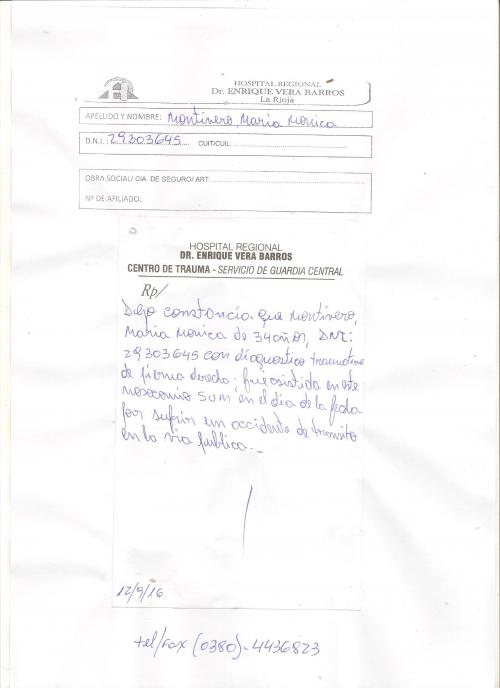 HOSPITAL REGIONAL
Dr. ENRIQUE VERA BARROS
La Rioja
APELLIDO Y NOMBRE: Montivero, Maria Monica
D.N.I.: 29.303645 CUIT/CUIL:
OBRA SOCIAL/ CIA. DE SEGURO/ ART:
Nº DE AFILIADO:
HOSPITAL REGIONAL
DR. ENRIQUE VERA BARROS
CENTRO DE TRAUMA - SERVICIO DE GUARDIA CENTRAL
Rp/
Dejo constancia que Montivero,
Maria Monica de 34 años, DNI:
29.303645 con diagnostico traumatismo
de pierna derecha; fue asistida en este
nosocomio en el dia de la fecha
por sufrir un accidente de transito
en la via publica.-
12/9/16
tel/fax (0380)-4436823